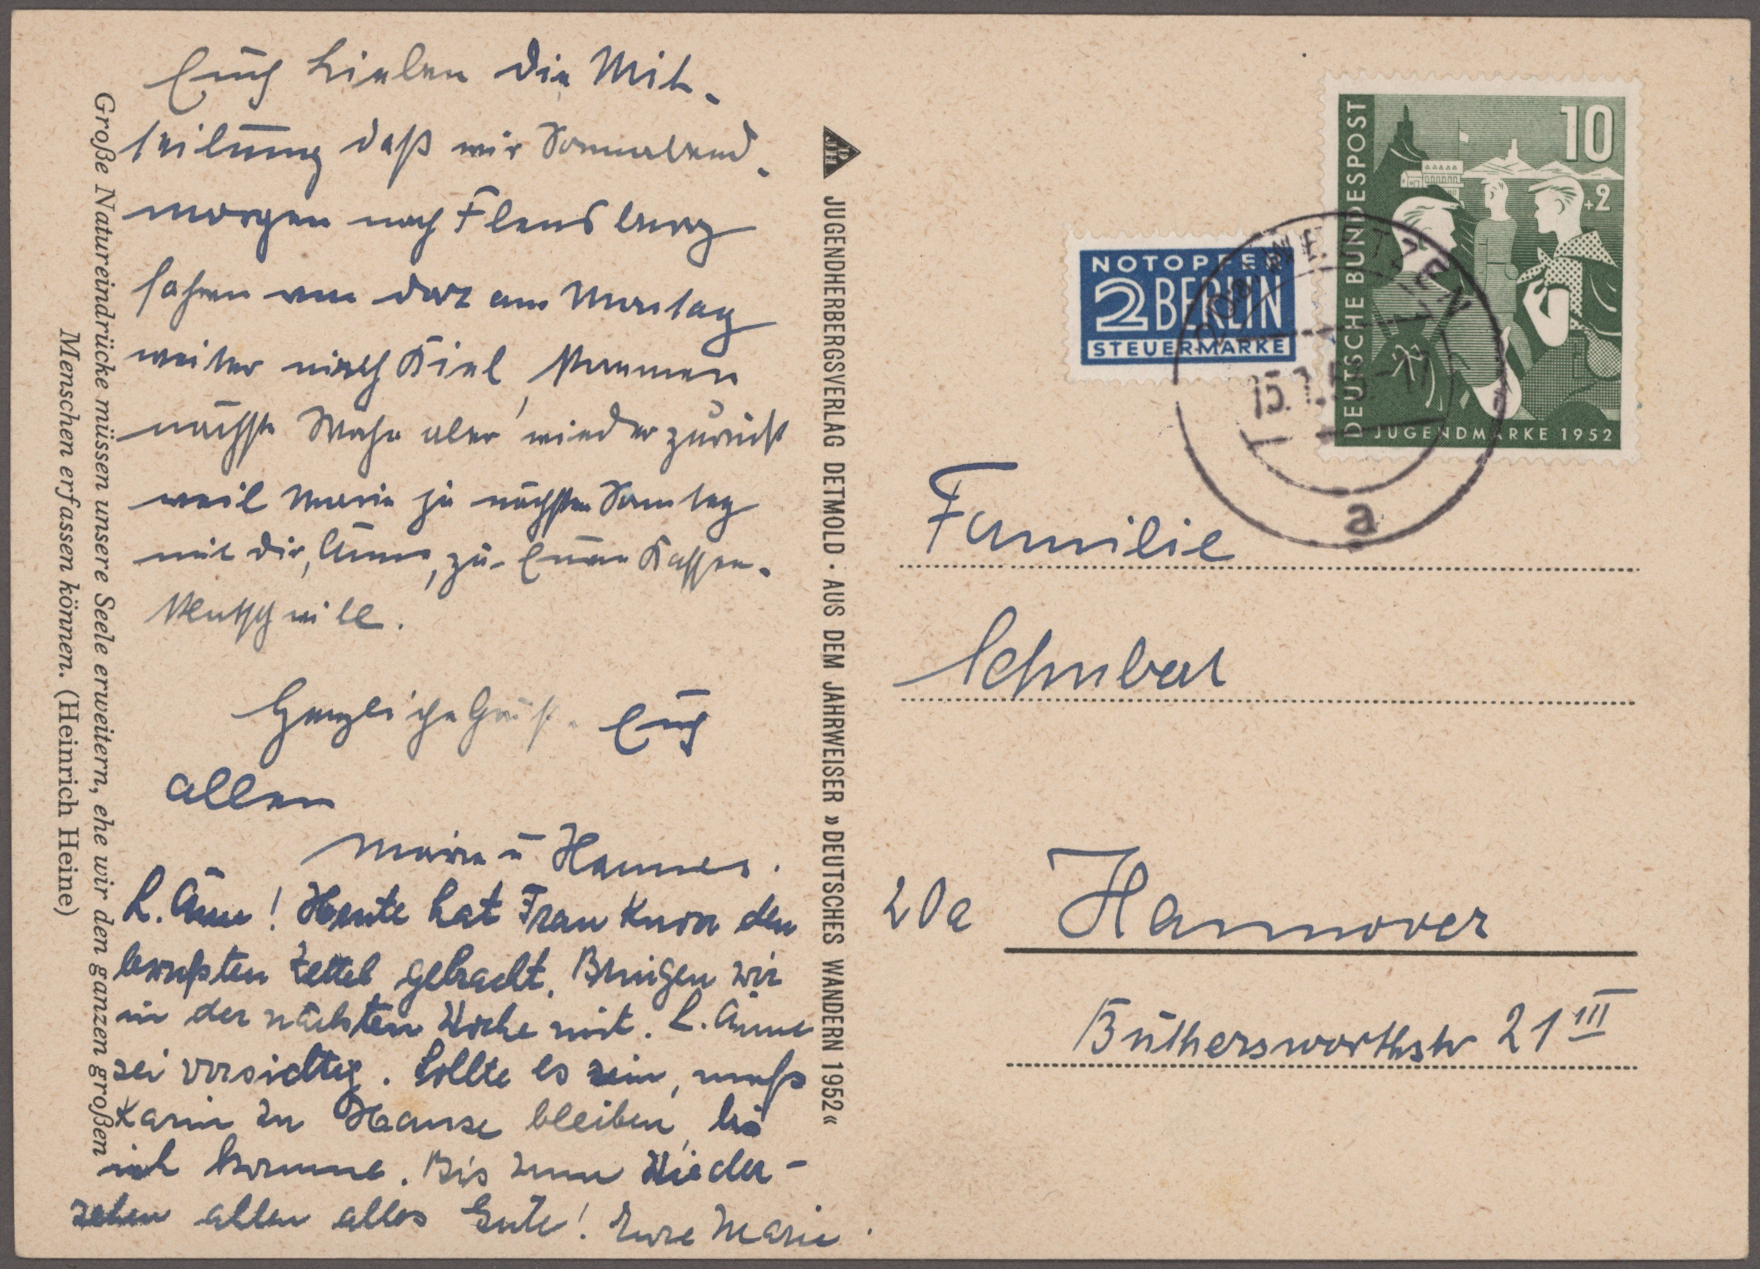 Euch Lieben die Mit-
teilung daß wir Sonnabend-
morgen nach Flensburg
fahren von dort am Montag
weiter nach Kiel, kommen
nächste Woche aber wieder zurück
weil Marie ja nächsten Sonntag
mit dir, Änne, zu Euren Kaffee-
klatsch will.
Herzliche Grüße Euch
allen
Marie u Hannes.
L. Änne! Heute hat Frau Knorr den
bewußten Zettel gebracht. Bringen wir
in der nächsten Woche mit. L. Änne
sei vorsichtig. Sollte es sein, muß
Karin zu Hause bleiben, bis
ich komme. Bis zum Wieder-
sehen allen alles Gute! Eure Marie
Große Natureindrücke müssen unsere Seele erweitern, ehe wir den ganzen großen
Menschen erfassen können. (Heinrich Heine)
JUGENDHERBERGSVERLAG DETMOLD · AUS DEM JAHRWEISER »DEUTSCHES WANDERN 1952«
NOTOPFER
2 BERLIN
STEUERMARKE
DEUTSCHE BUNDESPOST
10
+2
JUGENDMARKE 1952
a
Familie
Schubert
20a Hannover
Büthersworthstr 21 III